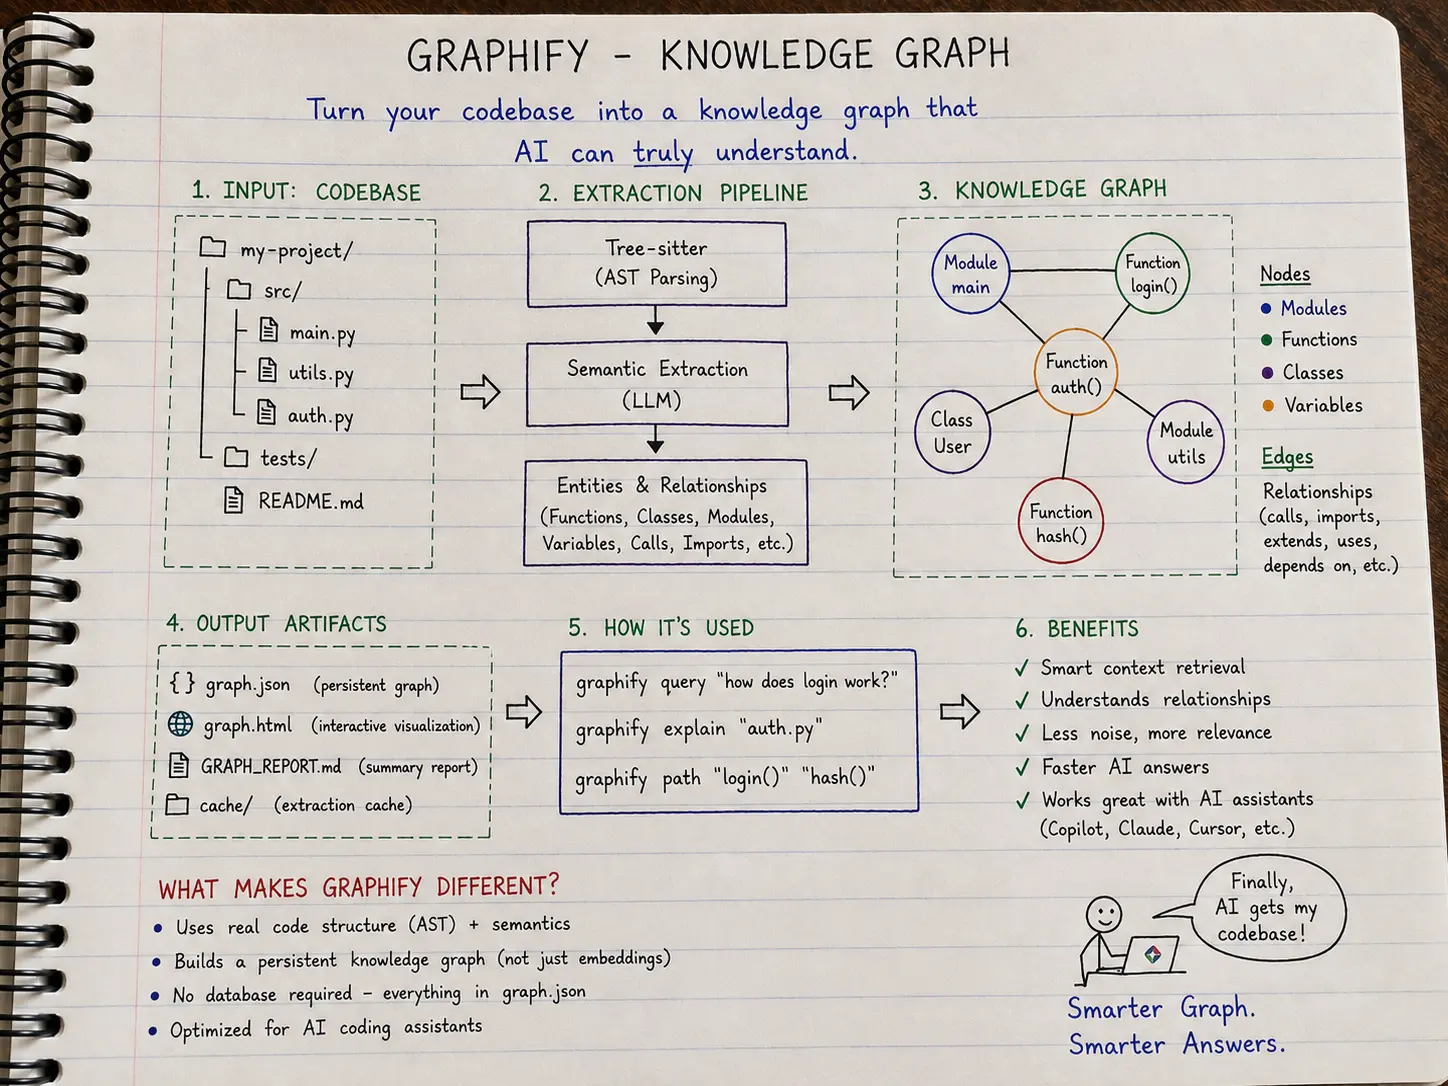 GRAPHIFY - KNOWLEDGE GRAPH
Turn your codebase into a knowledge graph that
AI can truly understand.
1. INPUT: CODEBASE
my-project/
src/
main.py
utils.py
auth.py
tests/
README.md
2. EXTRACTION PIPELINE
Tree-sitter
(AST Parsing)
Semantic Extraction
(LLM)
Entities & Relationships
(Functions, Classes, Modules,
Variables, Calls, Imports, etc.)
3. KNOWLEDGE GRAPH
Module
main
Function
login()
Function
auth()
Class
User
Module
utils
Function
hash()
Nodes
Modules
Functions
Classes
Variables
Edges
Relationships
(calls, imports,
extends, uses,
depends on, etc.)
4. OUTPUT ARTIFACTS
{ } graph.json (persistent graph)
graph.html (interactive visualization)
GRAPH_REPORT.md (summary report)
cache/ (extraction cache)
5. HOW IT'S USED
graphify query "how does login work?"
graphify explain "auth.py"
graphify path "login()" "hash()"
6. BENEFITS
✓ Smart context retrieval
✓ Understands relationships
✓ Less noise, more relevance
✓ Faster AI answers
✓ Works great with AI assistants
(Copilot, Claude, Cursor, etc.)
WHAT MAKES GRAPHIFY DIFFERENT?
• Uses real code structure (AST) + semantics
• Builds a persistent knowledge graph (not just embeddings)
• No database required - everything in graph.json
• Optimized for AI coding assistants
Finally,
AI gets my
codebase!
Smarter Graph.
Smarter Answers.